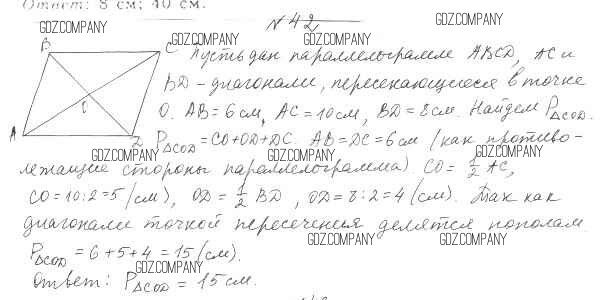 Ответ: 8 см; 40 см.
№ 42
GDZ.COMPANY
GDZ.COMPANY
GDZ.COMPANY
GDZ.COMPANY
B
C
A
D
O
Пусть дан параллелограмм ABCD, AC и
BD - диагонали, пересекающиеся в точке
O. AB = 6 см, AC = 10 см, BD = 8 см. Найдем P△COD.
P△COD = CO + OD + DC. AB = DC = 6 см (как противо-
GDZ.COMPANY
GDZ.COMPANY
GDZ.COMPANY
лежащие стороны параллелограмма) CO = 1/2 AC,
CO = 10:2 = 5 (см), OD = 1/2 BD, OD = 8:2 = 4 (см). Так как
диагонали точкой пересечения делятся пополам.
GDZ.COMPANY
GDZ.COMPANY
P△COD = 6 + 5 + 4 = 15 (см).
GDZ.COMPANY
Ответ: P△COD = 15 см.